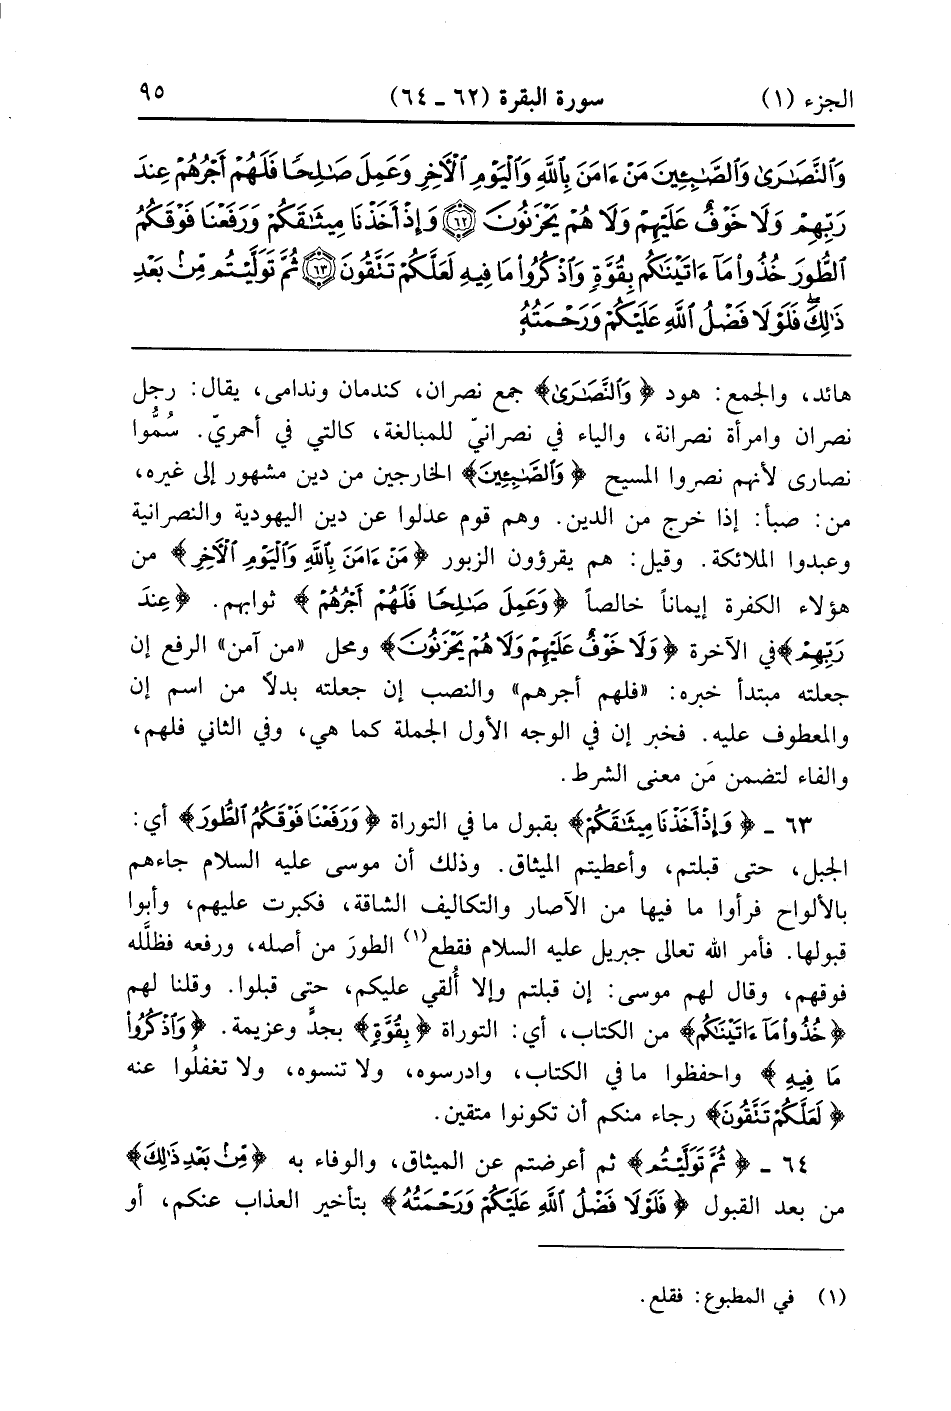 الجزء (١) سورة البقرة (٦٢ ـ ٦٤) ٩٥
وَٱلنَّصَٰرَىٰ وَٱلصَّٰبِـِٔينَ مَنْ ءَامَنَ بِٱللَّهِ وَٱلْيَوْمِ ٱلْأَخِرِ وَعَمِلَ صَٰلِحًا فَلَهُمْ أَجْرُهُمْ عِندَ
رَبِّهِمْ وَلَا خَوْفٌ عَلَيْهِمْ وَلَا هُمْ يَحْزَنُونَ ۝٦٢ وَإِذْ أَخَذْنَا مِيثَٰقَكُمْ وَرَفَعْنَا فَوْقَكُمُ
ٱلطُّورَ خُذُوا۟ مَآ ءَاتَيْنَٰكُم بِقُوَّةٍ وَٱذْكُرُوا۟ مَا فِيهِ لَعَلَّكُمْ تَتَّقُونَ ۝٦٣ ثُمَّ تَوَلَّيْتُم مِّنۢ بَعْدِ
ذَٰلِكَ ۖ فَلَوْلَا فَضْلُ ٱللَّهِ عَلَيْكُمْ وَرَحْمَتُهُۥ
هائد، والجمع: هود ﴿وَٱلنَّصَٰرَىٰ﴾ جمع نصران، كندمان وندامى، يقال: رجل
نصران وامرأة نصرانة، والياء في نصرانيّ للمبالغة، كالتي في أحمريّ. سُمُّوا
نصارى لأنهم نصروا المسيح ﴿وَٱلصَّٰبِـِٔينَ﴾ الخارجين من دين مشهور إلى غيره،
من: صبأ: إذا خرج من الدين. وهم قوم عدلوا عن دين اليهودية والنصرانية
وعبدوا الملائكة. وقيل: هم يقرؤون الزبور ﴿مَنْ ءَامَنَ بِٱللَّهِ وَٱلْيَوْمِ ٱلْأَخِرِ﴾ من
هؤلاء الكفرة إيماناً خالصاً ﴿وَعَمِلَ صَٰلِحًا فَلَهُمْ أَجْرُهُمْ﴾ ثوابهم. ﴿عِندَ
رَبِّهِمْ﴾ في الآخرة ﴿وَلَا خَوْفٌ عَلَيْهِمْ وَلَا هُمْ يَحْزَنُونَ﴾ ومحل «من آمن» الرفع إن
جعلته مبتدأ خبره: «فلهم أجرهم» والنصب إن جعلته بدلاً من اسم إن
والمعطوف عليه. فخبر إن في الوجه الأول الجملة كما هي، وفي الثاني فلهم،
والفاء لتضمن مَن معنى الشرط.
٦٣ ـ ﴿وَإِذْ أَخَذْنَا مِيثَٰقَكُمْ﴾ بقبول ما في التوراة ﴿وَرَفَعْنَا فَوْقَكُمُ ٱلطُّورَ﴾ أي:
الجبل، حتى قبلتم، وأعطيتم الميثاق. وذلك أن موسى عليه السلام جاءهم
بالألواح فرأوا ما فيها من الآصار والتكاليف الشاقة، فكبرت عليهم، وأبوا
قبولها. فأمر الله تعالى جبريل عليه السلام فقطع(١) الطورَ من أصله، ورفعه فظلَّله
فوقهم، وقال لهم موسى: إن قبلتم وإلا أُلقي عليكم، حتى قبلوا. وقلنا لهم
﴿خُذُوا۟ مَآ ءَاتَيْنَٰكُم﴾ من الكتاب، أي: التوراة ﴿بِقُوَّةٍ﴾ بجدٍّ وعزيمة. ﴿وَٱذْكُرُوا۟
مَا فِيهِ﴾ واحفظوا ما في الكتاب، وادرسوه، ولا تنسوه، ولا تغفلُوا عنه
﴿لَعَلَّكُمْ تَتَّقُونَ﴾ رجاء منكم أن تكونوا متقين.
٦٤ ـ ﴿ثُمَّ تَوَلَّيْتُم﴾ ثم أعرضتم عن الميثاق، والوفاء به ﴿مِّنۢ بَعْدِ ذَٰلِكَ﴾
من بعد القبول ﴿فَلَوْلَا فَضْلُ ٱللَّهِ عَلَيْكُمْ وَرَحْمَتُهُۥ﴾ بتأخير العذاب عنكم، أو
(١) في المطبوع: فقلع.